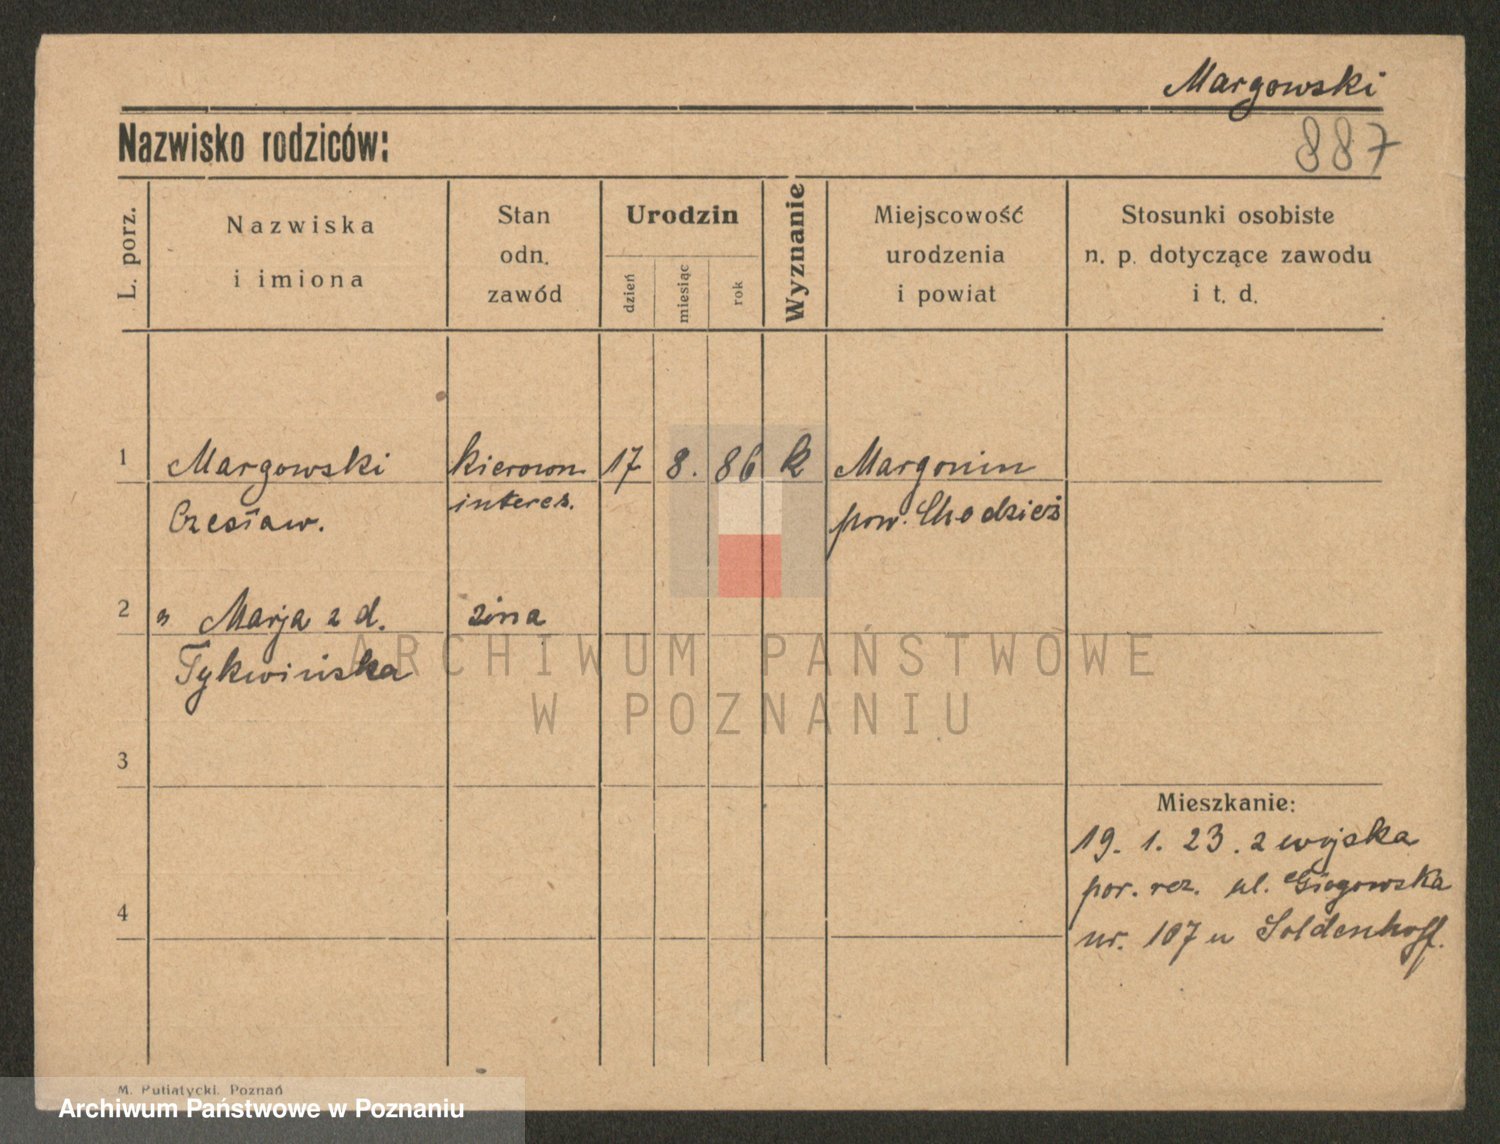 Margowski
Nazwisko rodziców:
887
L. porz.
Nazwiska
i imiona
Stan
odn.
zawód
Urodzin
dzień
miesiąc
rok
Wyznanie
Miejscowość
urodzenia
i powiat
Stosunki osobiste
n. p. dotyczące zawodu
i t. d.
1 Margowski kierown 17 8. 86 k Margonin
Czesław. interes. pow. Chodzież
2 " Marja z d. żona
Tykwińska
ARCHIWUM PAŃSTWOWE
W POZNANIU
3
Mieszkanie:
19. 1. 23. z wojska
por. rez. ul. Głogowska
4
nr. 107 u Soldenhoff.
M. Putiatycki. Poznań
Archiwum Państwowe w Poznaniu